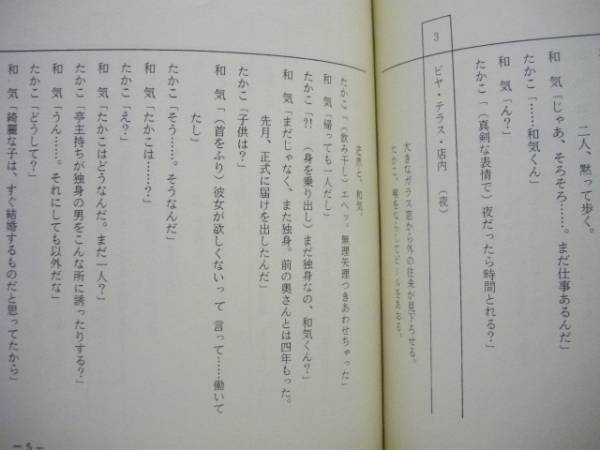 二人、黙って歩く。
和　気「じゃあ、そろそろ……。まだ仕事あるんだ」
たかこ「……和気くん」
和　気「ん？」
たかこ「（真剣な表情で）夜だったら時間とれる？」
3　ビヤ・テラス・店内　（夜）
大きなガラス窓から外の往来が見下ろせる。
たかこ、喉をならしてビールをあおる。
茫然と、和気。
たかこ「（飲み干し）エヘッ。無理矢理つきあわせちゃった」
和　気「帰っても一人だし」
たかこ「?!　（身を乗り出し）まだ独身なの、和気くん？」
和　気「まだじゃなく、また独身。前の奥さんとは四年もった。
先月、正式に届けを出したんだ」
たかこ「子供は？」
和　気「（首をふり）彼女が欲しくないって　言って……働いて
たし」
たかこ「そう……。そうなんだ」
和　気「たかこは……？」
たかこ「え？」
和　気「たかこはどうなんだ。まだ一人？」
たかこ「亭主持ちが独身の男をこんな所に誘ったりする？」
和　気「うん……。それにしても以外だな」
たかこ「どうして？」
和　気「綺麗な子は、すぐ結婚するものだと思ってたから」
－5－